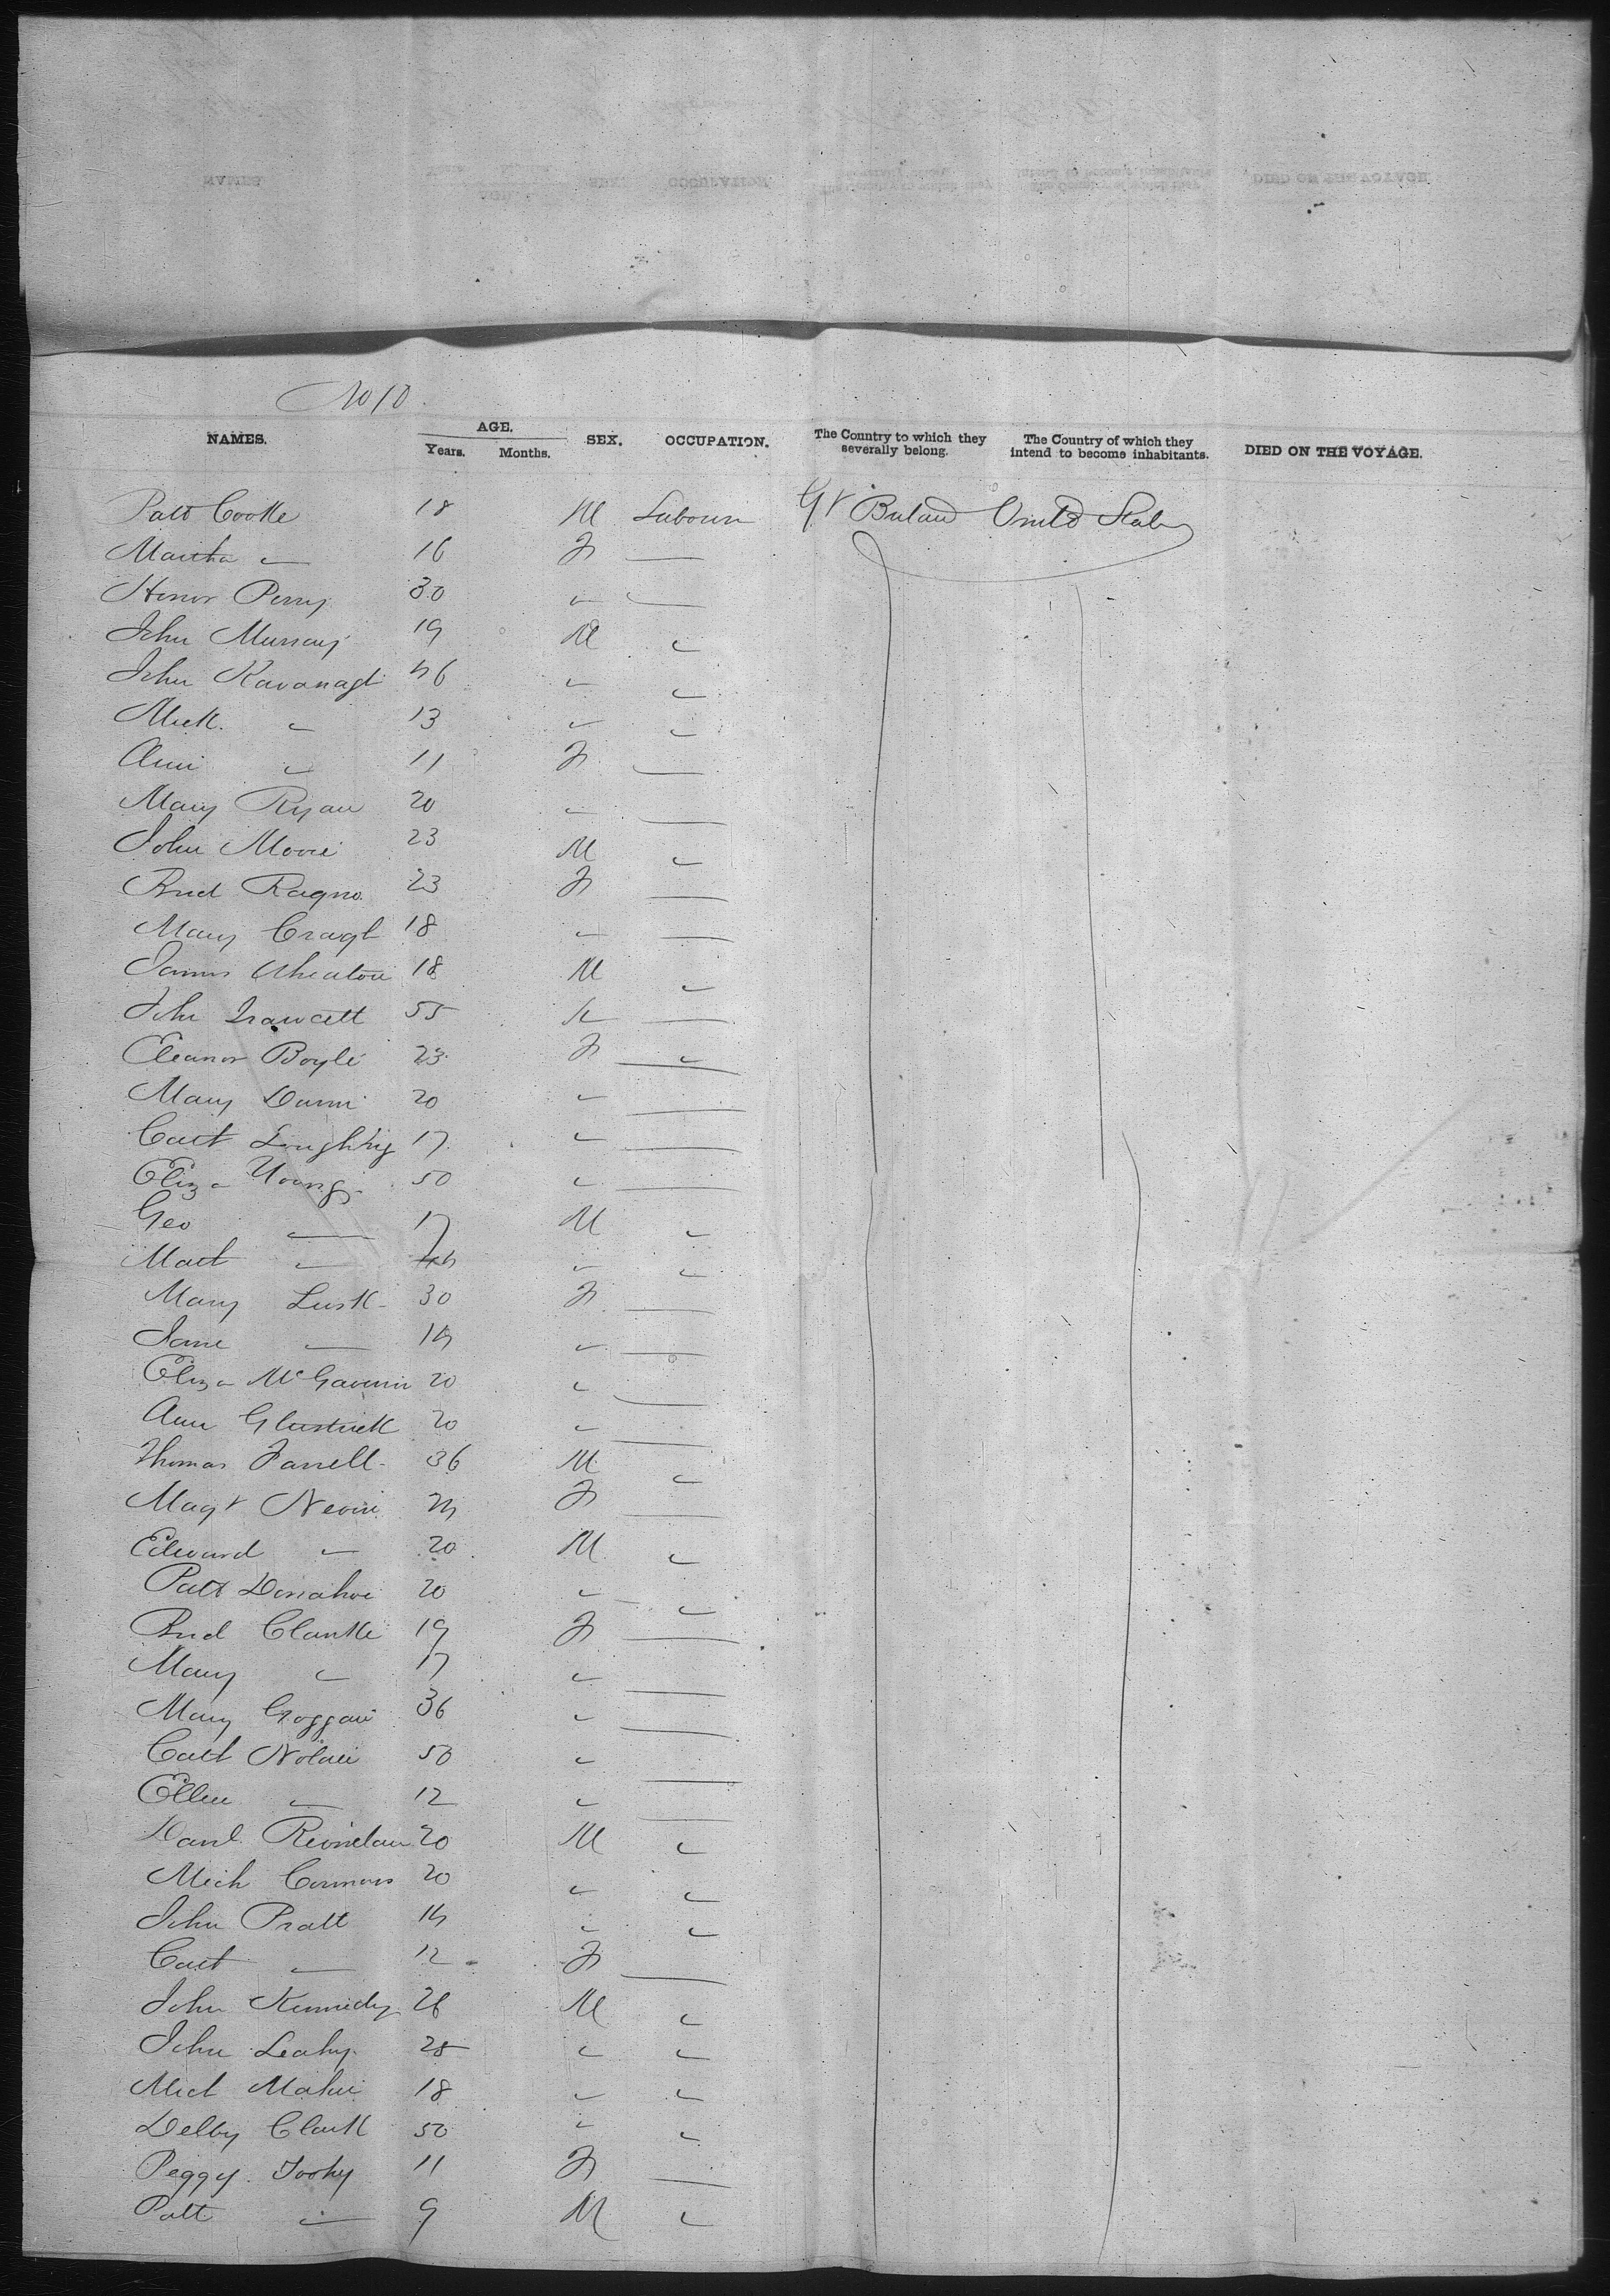 No 10.
NAMES. AGE. Years. Months. SEX. OCCUPATION. The Country to which they severally belong. The Country of which they intend to become inhabitants. DIED ON THE VOYAGE.
Patt Cooke 18 M Labourer Gt Britain United States
Martha " 16 F —
Honor Perry 30 " —
John Murray 19 M "
John Kavanagh 46 " "
Mick " 13 " "
Ann " 11 F —
Mary Ryan 20 " —
John Moore 23 M "
Brid 23 F —
Mary 18 " —
James Wheaton 18 M "
John Frawcett 55 —
Eleanor Boyle 23 F —
Mary Dunn 20 " —
Cath 17 " —
Eliza Young 50 " —
Geo — 17 M "
Matt " " "
Mary Lusk 30 F —
Jane — 14 " —
Eliza McGavinn 20 " —
Ann 20 " —
Thomas Farrell 36 M "
Magt Nevin 24 F —
Edward " 20 M "
Patt Donahoe 20 " "
Brid Clarke 19 F —
Mary " 17 " —
Mary Goggan 36 " —
Cath Nolan 50 " —
Ellen " 12 " —
Danl 20 M "
Mich Connors 20 " "
John Pratt 14 " "
Cath " 12 F —
John Kennedy 26 M "
John Leahy 25 " "
Mich Maher 18 " "
Delby Clark 50 " "
Peggy Toohy 11 F —
Patt " 9 M "